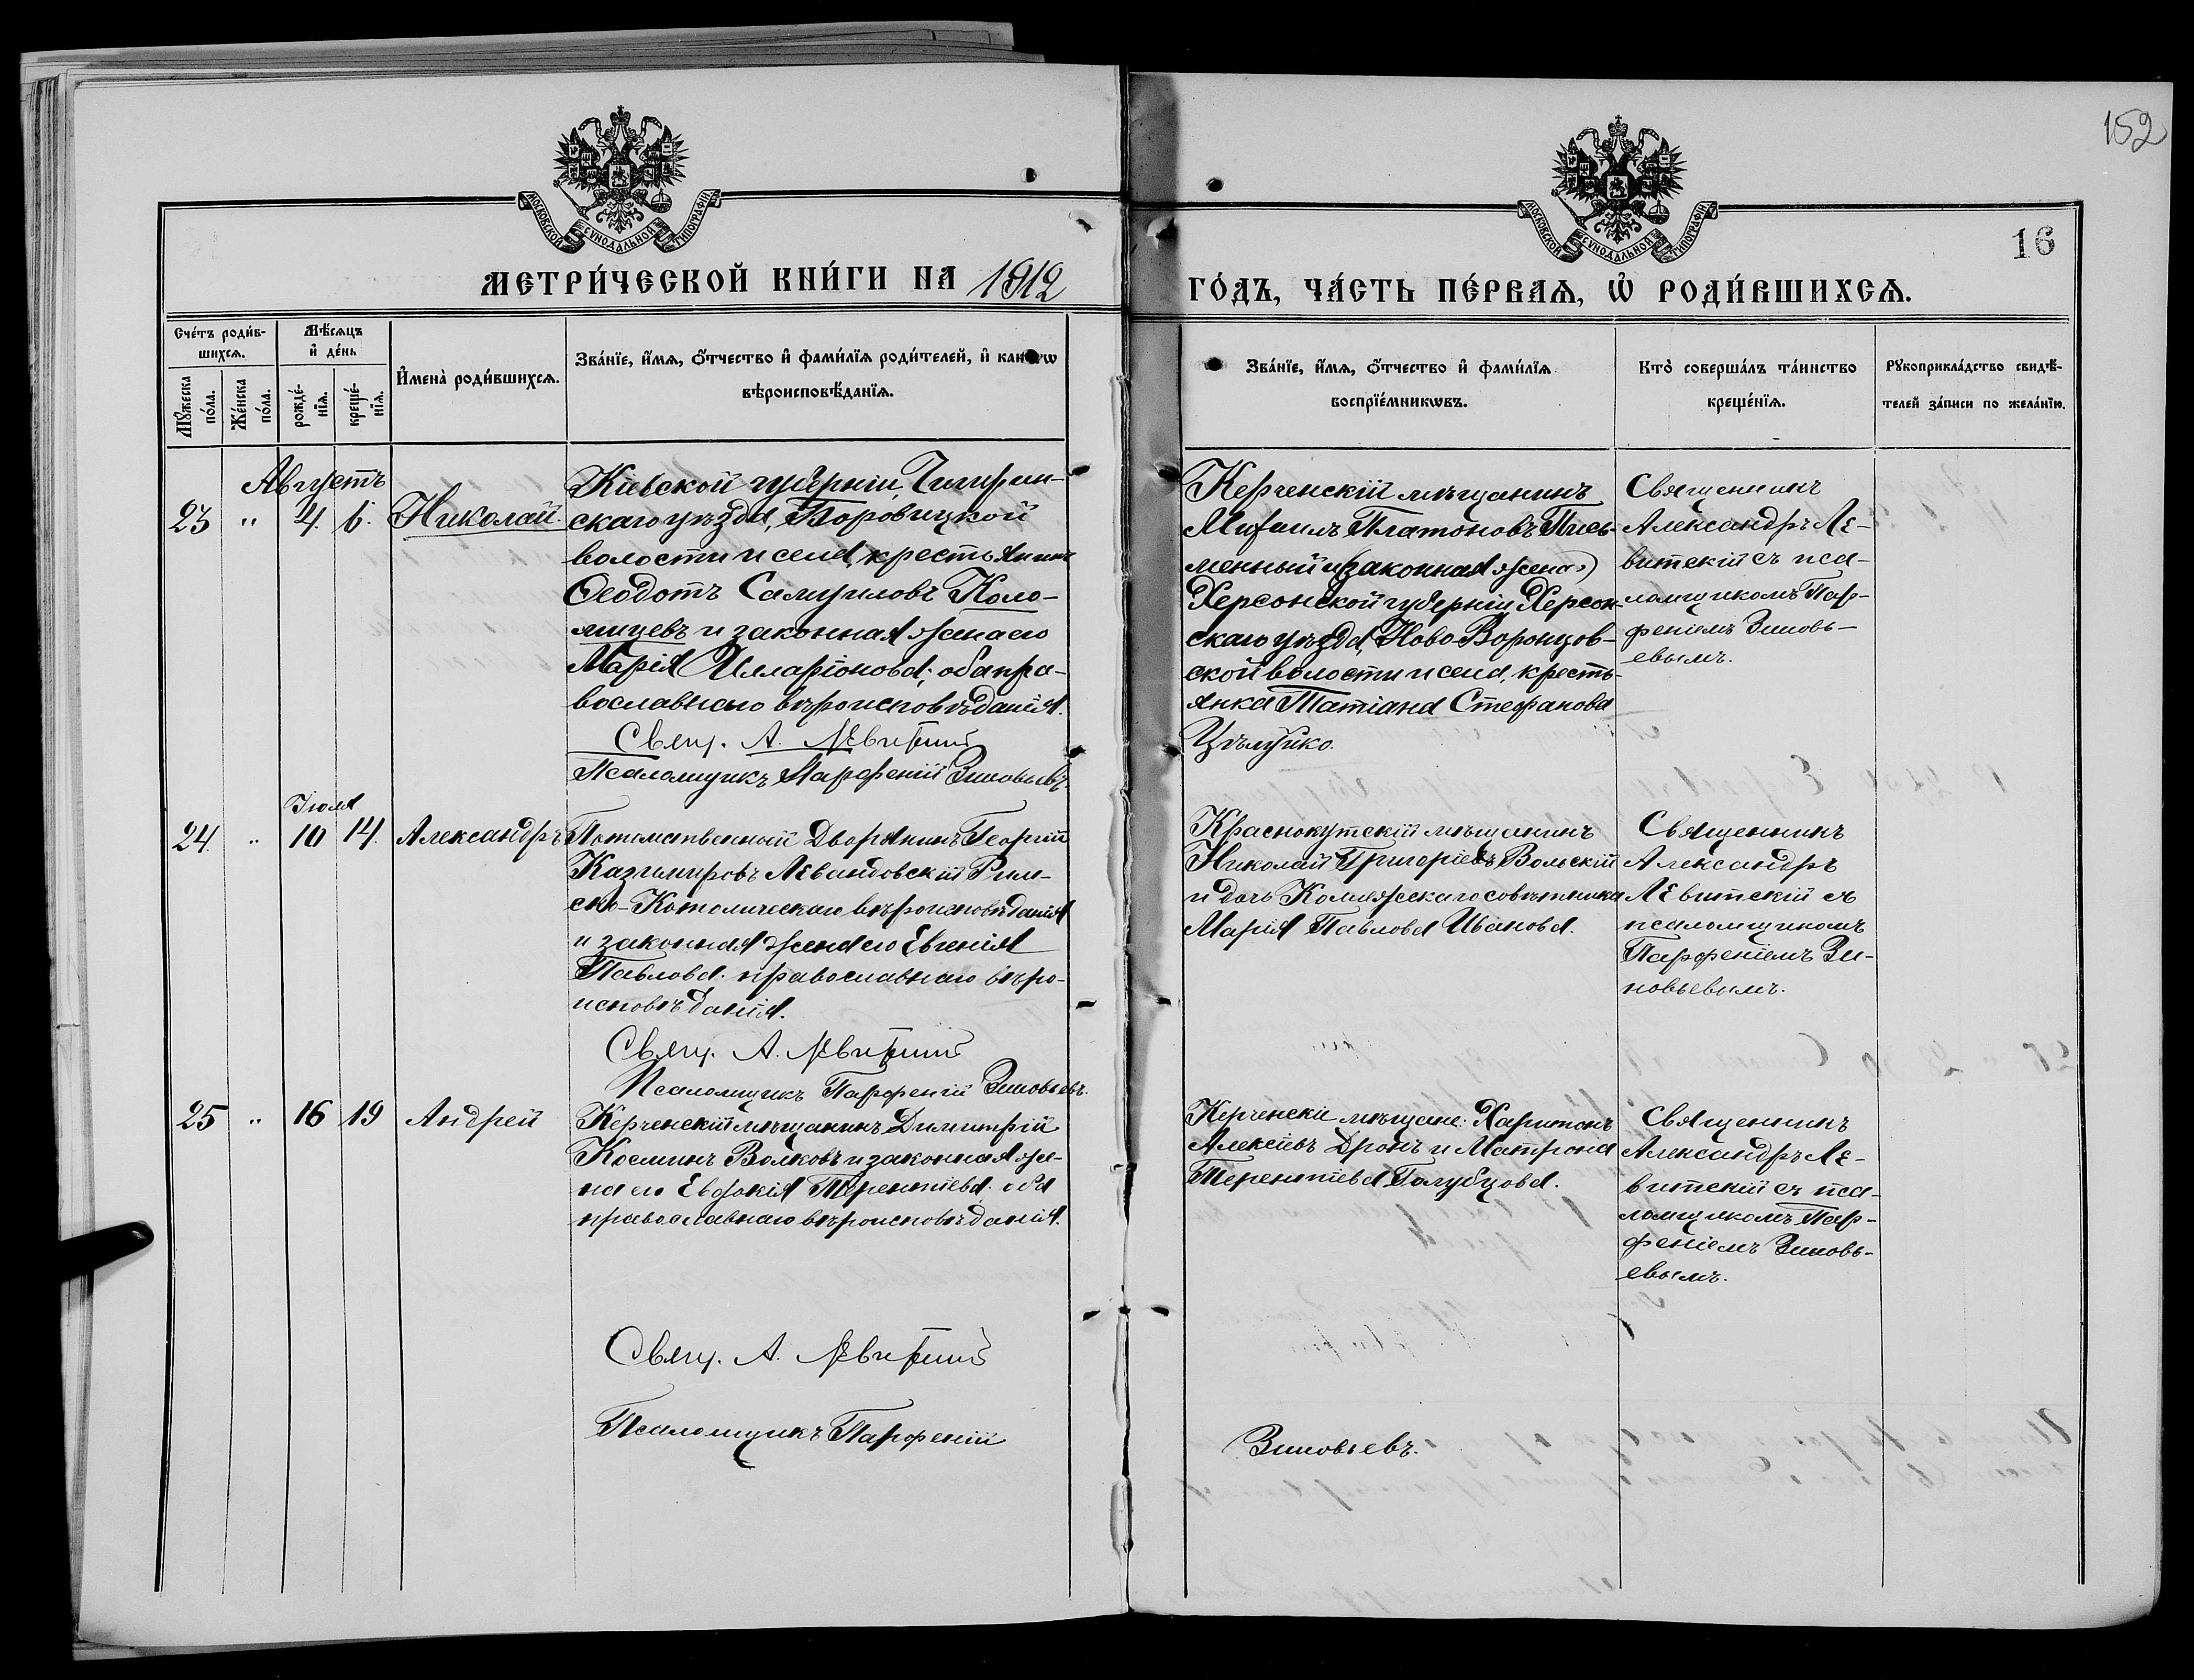 152
МОСКОВСКОЙ СѴНОДАЛЬНОЙ ТИПОГРАФІИ
МОСКОВСКОЙ СѴНОДАЛЬНОЙ ТИПОГРАФІИ
16
МЕТРИ́ЧЕСКОЙ КНИ́ГИ НА 1912
ГО́ДЪ, ЧА́СТЬ ПЕ́РВАѦ, Ѡ҆ РОДИ́ВШИХСѦ.
Сче́тъ роди́в-
шихсѧ.
Мѣ́сѧцъ
и҆ де́нь
Мꙋ́жеска
по́ла.
Же́нска
по́ла.
рожде́-
нїѧ.
креще́-
нїѧ.
И҆мена̀ роди́вшихсѧ.
Зва́нїе, и҆́мѧ, ѻ҆́тчество и҆ фами́лїѧ роди́телей, и҆
вѣроисповѣ́данїѧ.
Зва́нїе, и҆́мѧ, ѻ҆́тчество и҆ фами́лїѧ
воспрїе́мникѡвъ.
Кто̀ соверша́лъ та́инство
креще́нїѧ.
Рꙋкоприкла́дство свидѣ́-
телей за́писи по жела́нїю.
Августъ
23 " 4. 6. Николай.
Кіевской губерніи, Чигирин-
скаго уѣзда, Боровицкой
волости и села, крестьянинъ
Ѳеодотъ Самуиловъ Коло-
мицевъ и законная жена его
Марія Илларіонова; оба пра-
вославнаго вѣроисповѣданія.
Свящ. А. Левитскій
Псаломщикъ Парфеній Зиновьевъ.
Керченскій мѣщанинъ
Михаилъ Платоновъ Пись-
менный и (законная жена)
Херсонской губерніи Херсон-
скаго уѣзда, Ново-Воронцов-
ской волости и села, кресть-
янка Татіана Стефанова
Цѣлуйко.
Священникъ
Александръ Ле-
витскій съ пса-
ломщикомъ Пар-
феніемъ Зиновь-
евымъ.
Іюля
24. " 10 14. Александръ
Потомственный Дворянинъ Георгій
Казимировъ Левандовскій Рим-
ско-Католическаго вѣроисповѣданія
и законная жена его Евгенія
Павлова православнаго вѣро-
исповѣданія.
Свящ. А. Левитскій
Псаломщикъ Парфеній Зиновьевъ.
Краснокутскій мѣщанинъ
Николай Григоріевъ Вольскій
и дочь Коллежскаго совѣтника
Марія Павлова Иванова.
Священникъ
Александръ
Левитскій съ
псаломщикомъ
Парфеніемъ Зи-
новьевымъ.
25 " 16 19 Андрей
Керченскій мѣщанинъ Димитрій
Косминъ Волковъ и законная же-
на его Евдокія Терентіева оба
православнаго вѣроисповѣданія.
Свящ. А. Левитскій
Псаломщикъ Парфеній
Зиновьевъ.
Керченскіе мѣщане: Харитонъ
Алексіевъ Дронъ и Матрона
Терентіева Голубцова.
Священникъ
Александръ Ле-
витскій съ пса-
ломщикомъ Пар-
феніемъ Зиновь-
евымъ.